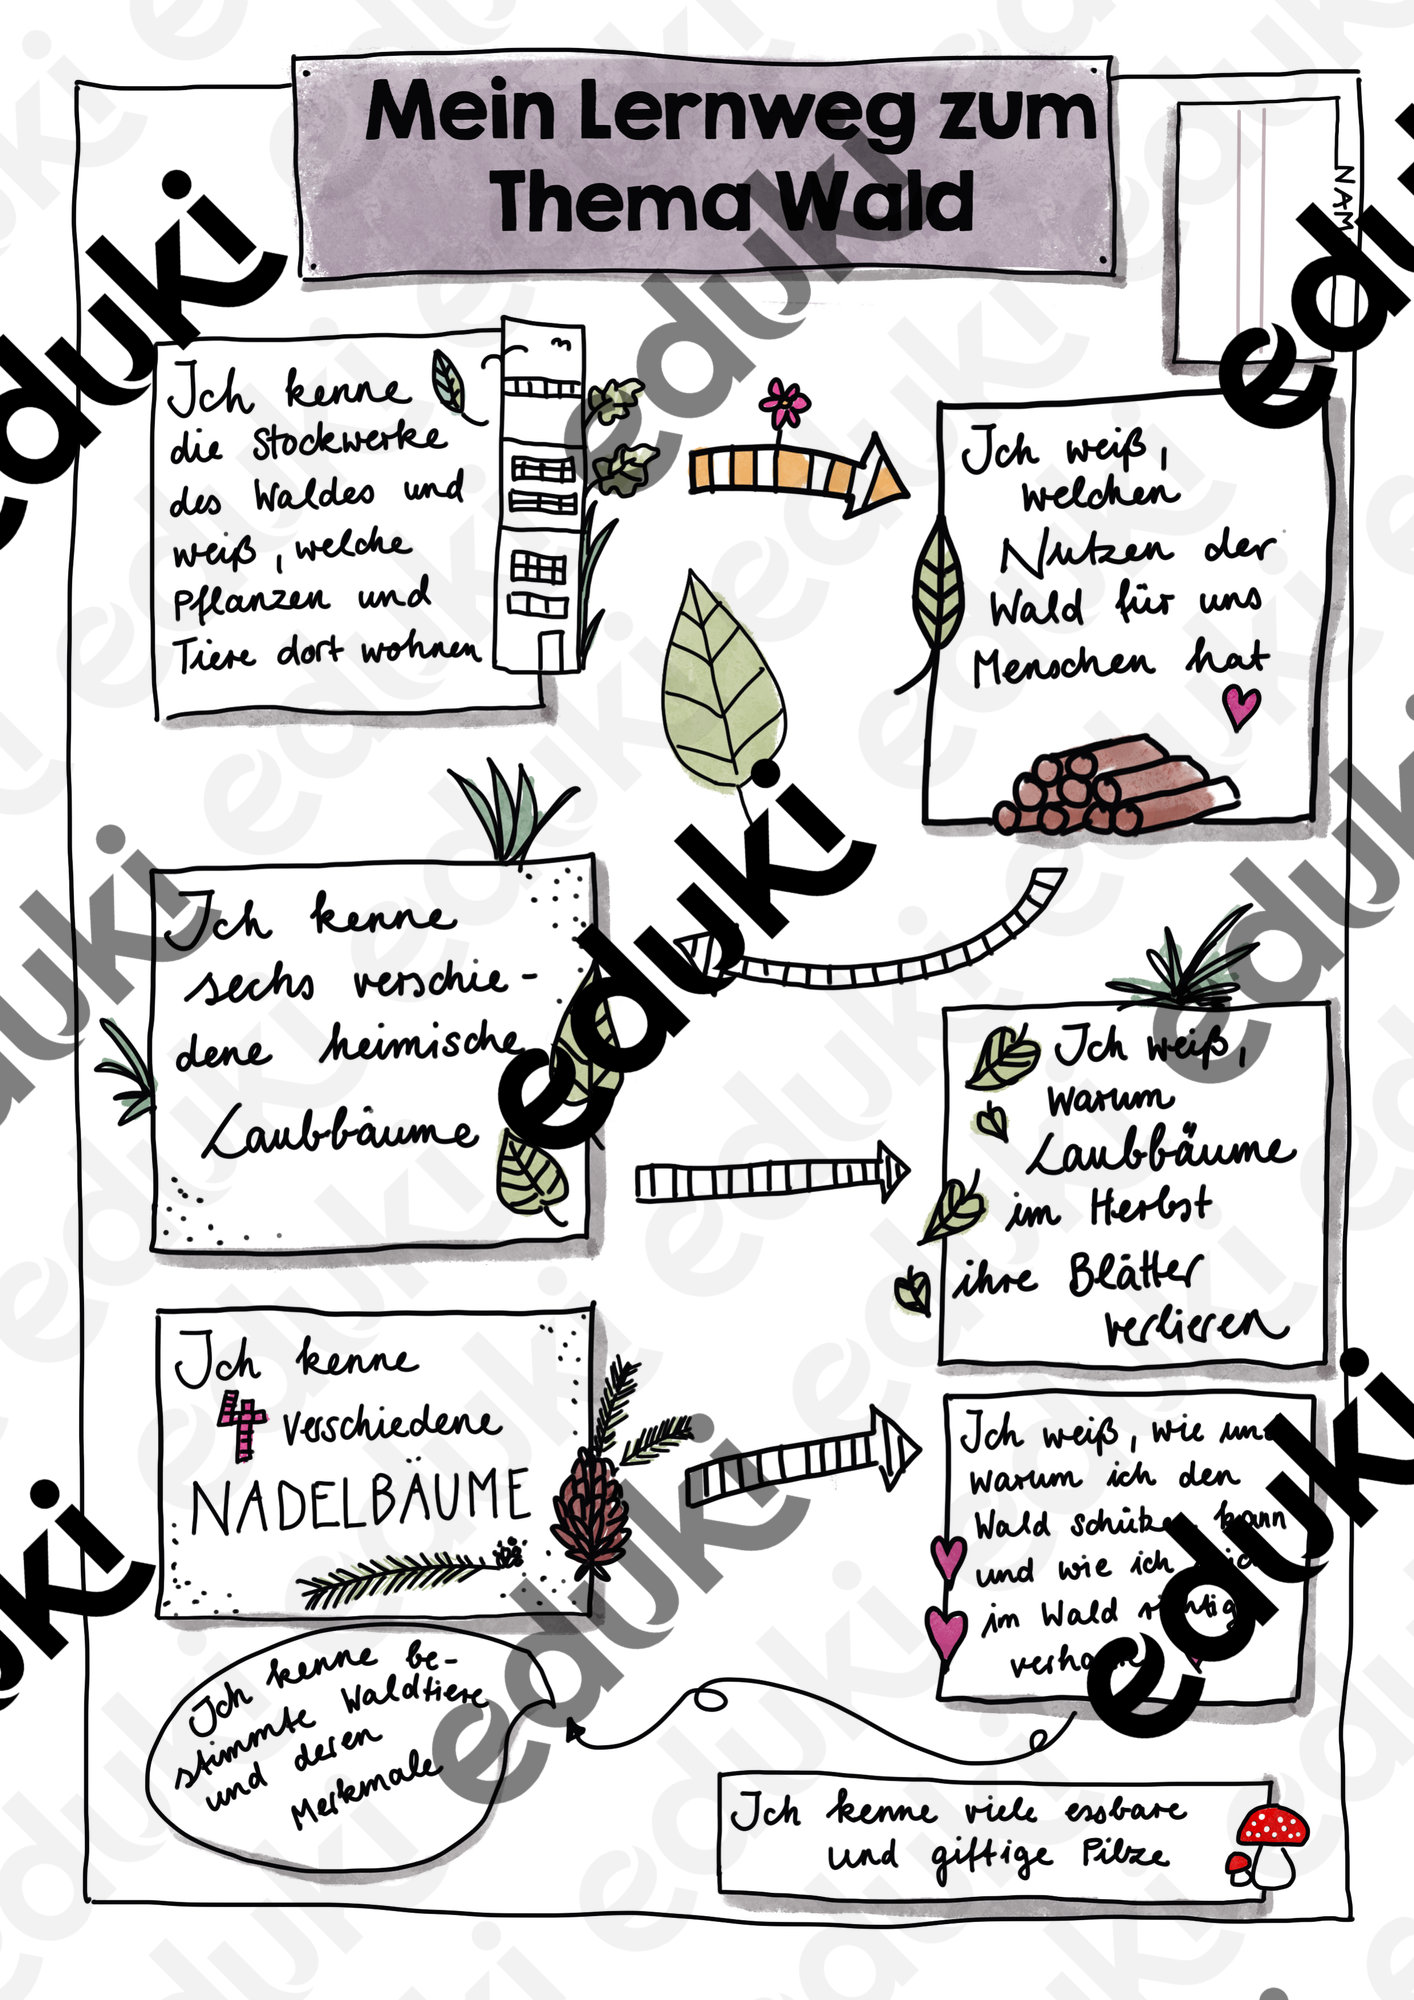 Mein Lernweg zum
Thema Wald
NAM
Ich kenne
die Stockwerke
des Waldes und
weiß, welche
Pflanzen und
Tiere dort wohnen
Ich weiß,
welchen
Nutzen der
Wald für uns
Menschen hat
Ich kenne
sechs verschie-
dene heimische
Laubbäume
Ich weiß,
warum
Laubbäume
im Herbst
ihre Blätter
verlieren
Ich kenne
4 verschiedene
NADELBÄUME
Ich weiß, wie
warum ich den
Wald kann
und wie ich
im Wald
Ich kenne be-
stimmte Waldtiere
und deren
Merkmale
Ich kenne viele essbare
und giftige Pilze
eduki
eduki
eduki
eduki
eduki
eduki